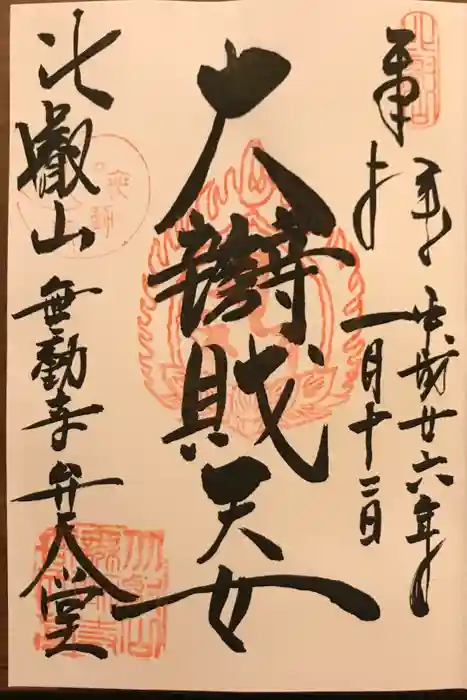 奉拝
平成廿六年
一月十二日
大辯財天女
比叡山 無動寺 弁天堂